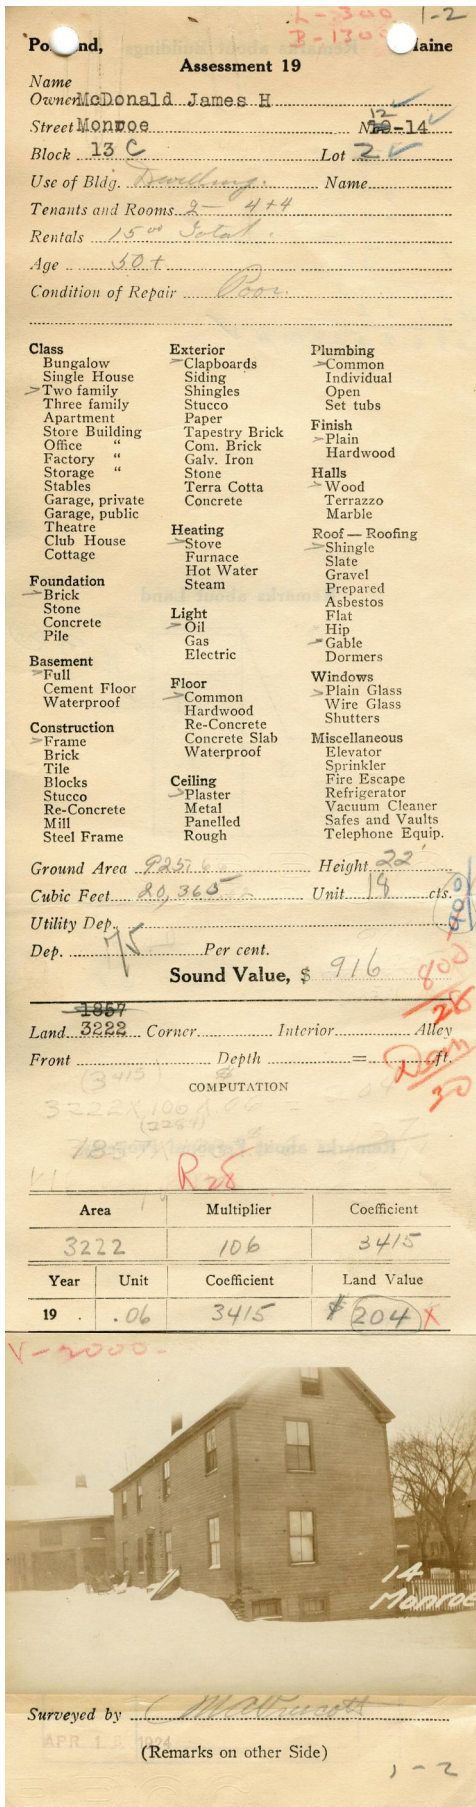 L-300 1-2
B-1300
Portland, Maine
Assessment 19
Name
Owner McDonald James H
12
Street Monroe No 10-14
Block 13 C Lot 2
Use of Bldg. Dwelling. Name
Tenants and Rooms 2- 4+4
Rentals 15 00 Total.
Age 50+
Condition of Repair Poor.
Class
Bungalow
Single House
Two family
Three family
Apartment
Store Building
Office "
Factory "
Storage "
Stables
Garage, private
Garage, public
Theatre
Club House
Cottage
Foundation
Brick
Stone
Concrete
Pile
Basement
Full
Cement Floor
Waterproof
Construction
Frame
Brick
Tile
Blocks
Stucco
Re-Concrete
Mill
Steel Frame
Exterior
Clapboards
Siding
Shingles
Stucco
Paper
Tapestry Brick
Com. Brick
Galv. Iron
Stone
Terra Cotta
Concrete
Heating
Stove
Furnace
Hot Water
Steam
Light
Oil
Gas
Electric
Floor
Common
Hardwood
Re-Concrete
Concrete Slab
Waterproof
Ceiling
Plaster
Metal
Panelled
Rough
Plumbing
Common
Individual
Open
Set tubs
Finish
Plain
Hardwood
Halls
Wood
Terrazzo
Marble
Roof — Roofing
Shingle
Slate
Gravel
Prepared
Asbestos
Flat
Hip
Gable
Dormers
Windows
Plain Glass
Wire Glass
Shutters
Miscellaneous
Elevator
Sprinkler
Fire Escape
Refrigerator
Vacuum Cleaner
Safes and Vaults
Telephone Equip.
Ground Area 925 Height 22'
Cubic Feet 20,365 Unit 18 cts.
900
Utility Dep.
Dep. 75 Per cent.
Sound Value, $ 916
800
28
1857
Land 3222 Corner Interior Alley
Front Depth = ft.
30
(3415)
COMPUTATION
3222 X 106 X 06
(2284)
1857
R 28
Area Multiplier Coefficient
3222 106 3415
Year Unit Coefficient Land Value
19 .06 3415 $ 204 X
V-2000-
14
Monroe
Surveyed by
APR 1 1924
(Remarks on other Side)
1-2